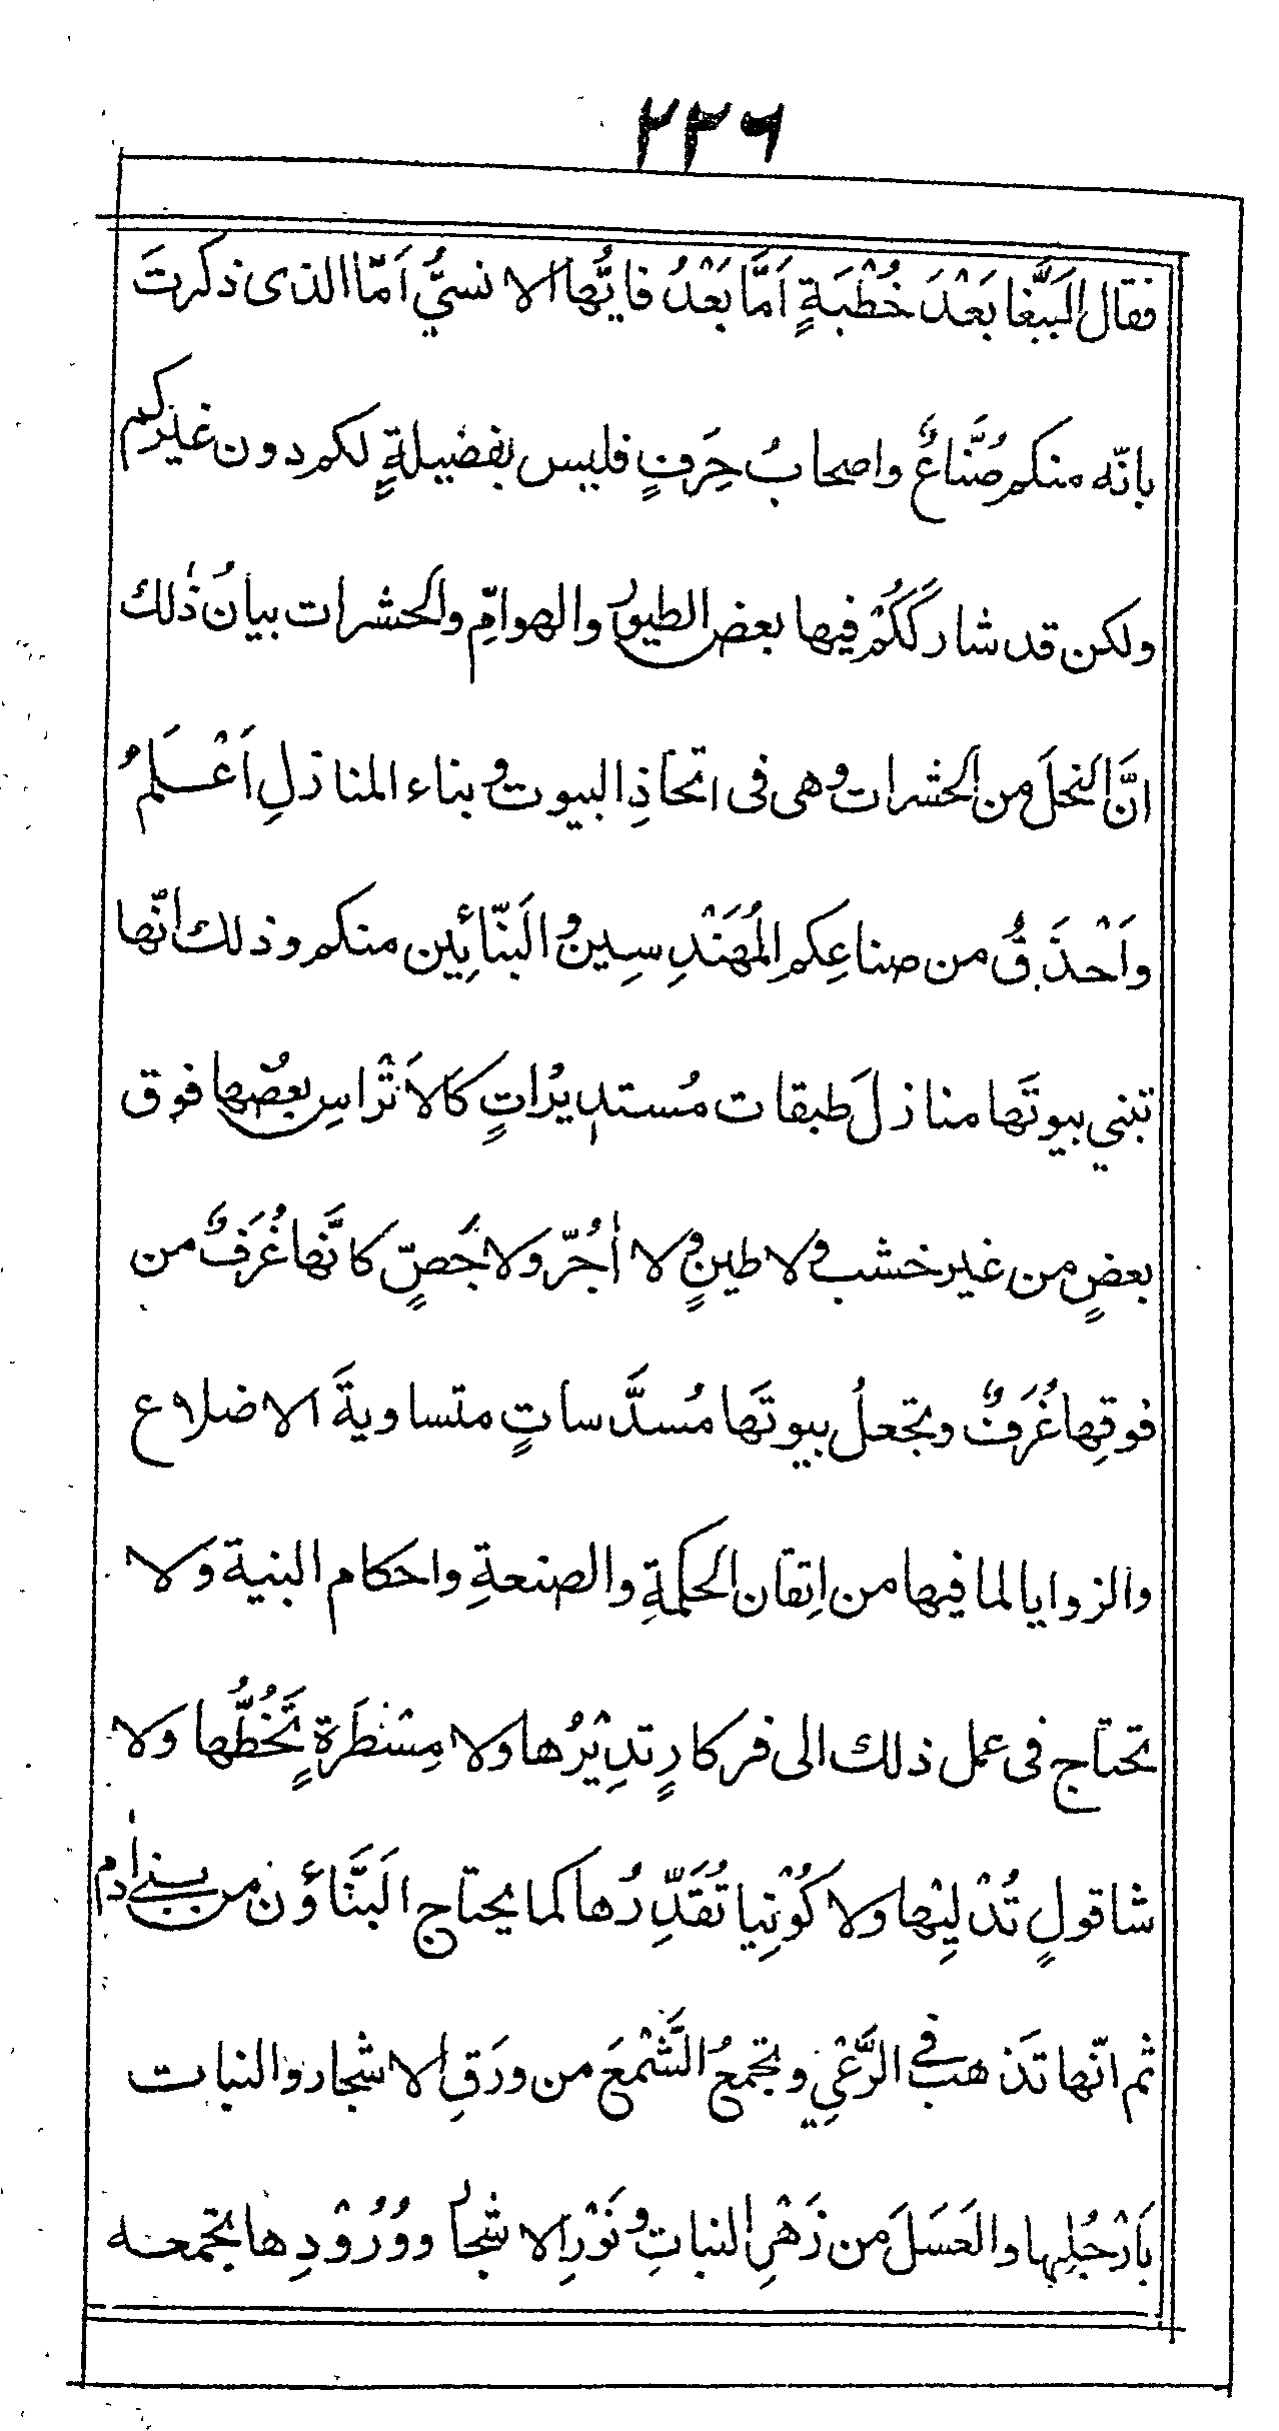 ٢٣٦
فقال البَبَّغا بَعْدَ خُطْبَةٍ اَمَّا بَعْدُ فايُّها الانسيُّ اَمّا الذى ذكرتَ
بانّه منكم صُنَّاعٌ واصحابُ حِرَفٍ فليس بفضيلةٍ لكم دون غيركم
ولكن قد شارَكَكُمْ فيها بعض الطيور والهوامِّ والحشرات بيانُ ذٰلك
انَّ النحلَ من الحشرات وهى فى اتخاذِ البيوت وبناء المنازلِ اَعْلمُ
واَحْذَقُ من صناعِكم المُهَنْدِسِين والبَنّائِين منكم وذلك انّها
تبني بيوتَها منازلَ طبقات مُستديرُاتٍ كالاَتْراسِ بعضُها فوق
بعضٍ من غير خشب ولا طينٍ ولا اٰجُرّ ولا جَصٍّ كانَّها غُرَفٌ من
فوقِها غُرَفٌ وتجعلُ بيوتَها مُسدَّساتٍ متساويةَ الاضلاع
والزوايا لما فيها من اِتقان الحكمةِ والصنعةِ واحكام البنية ولا
تحتاج فى عمل ذلك الى فركارٍ تدِيْرُها ولا مِسْطَرَةٍ تَخُطُّها ولا
شاقولٍ تُدْلِيْها ولا كُوْنِيا تُقَدِّرُها كما يحتاج البَنَّاؤن من بني اٰدم
ثم انّها تَذهب في الرَّعْيِ وتجمعُ الشَّمْعَ من ورَقِ الاشجار والنبات
بَارْجُلِها والعَسَلَ من زَهْرِ النباتِ ونَوْرِ الاشجار ووُرُوْدِها تجمعه